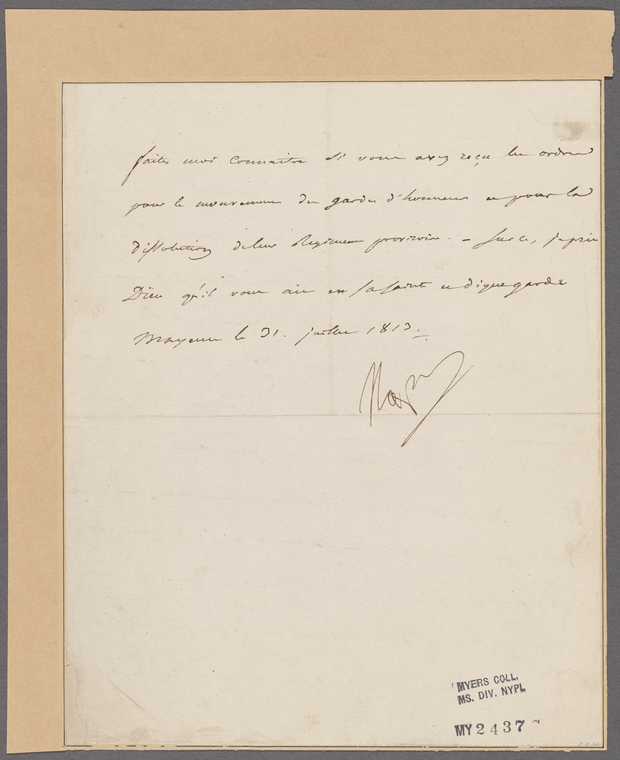 faites moi connaitre si vous avez reçu les ordres
pour le mouvement des gardes d'honneur et pour la
dissolution de leur Regiment provisoire. - Sur ce, je prie
Dieu qu'il vous ait en sa sainte et digne garde
Mayence le 31. juillet 1813.
Nap
MYERS COLL.
MS. DIV. NYPL
MY 2437